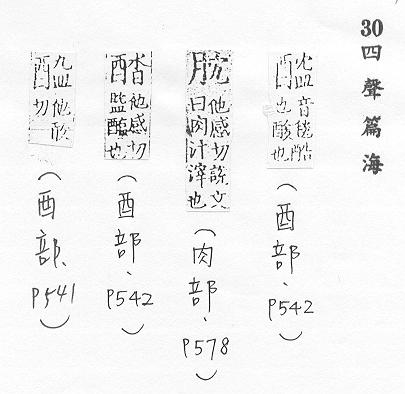 30四聲篇海
醓音毯醋也酸也
（酉部、P542）
䏙他感切說文曰肉汁滓也
（肉部、P578）
他感切也
（酉部、P542）
他敢切
（酉部、P541）